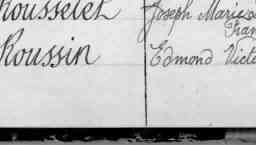 Rousselet Joseph Marie
Fran
Roussin Edmond Victo